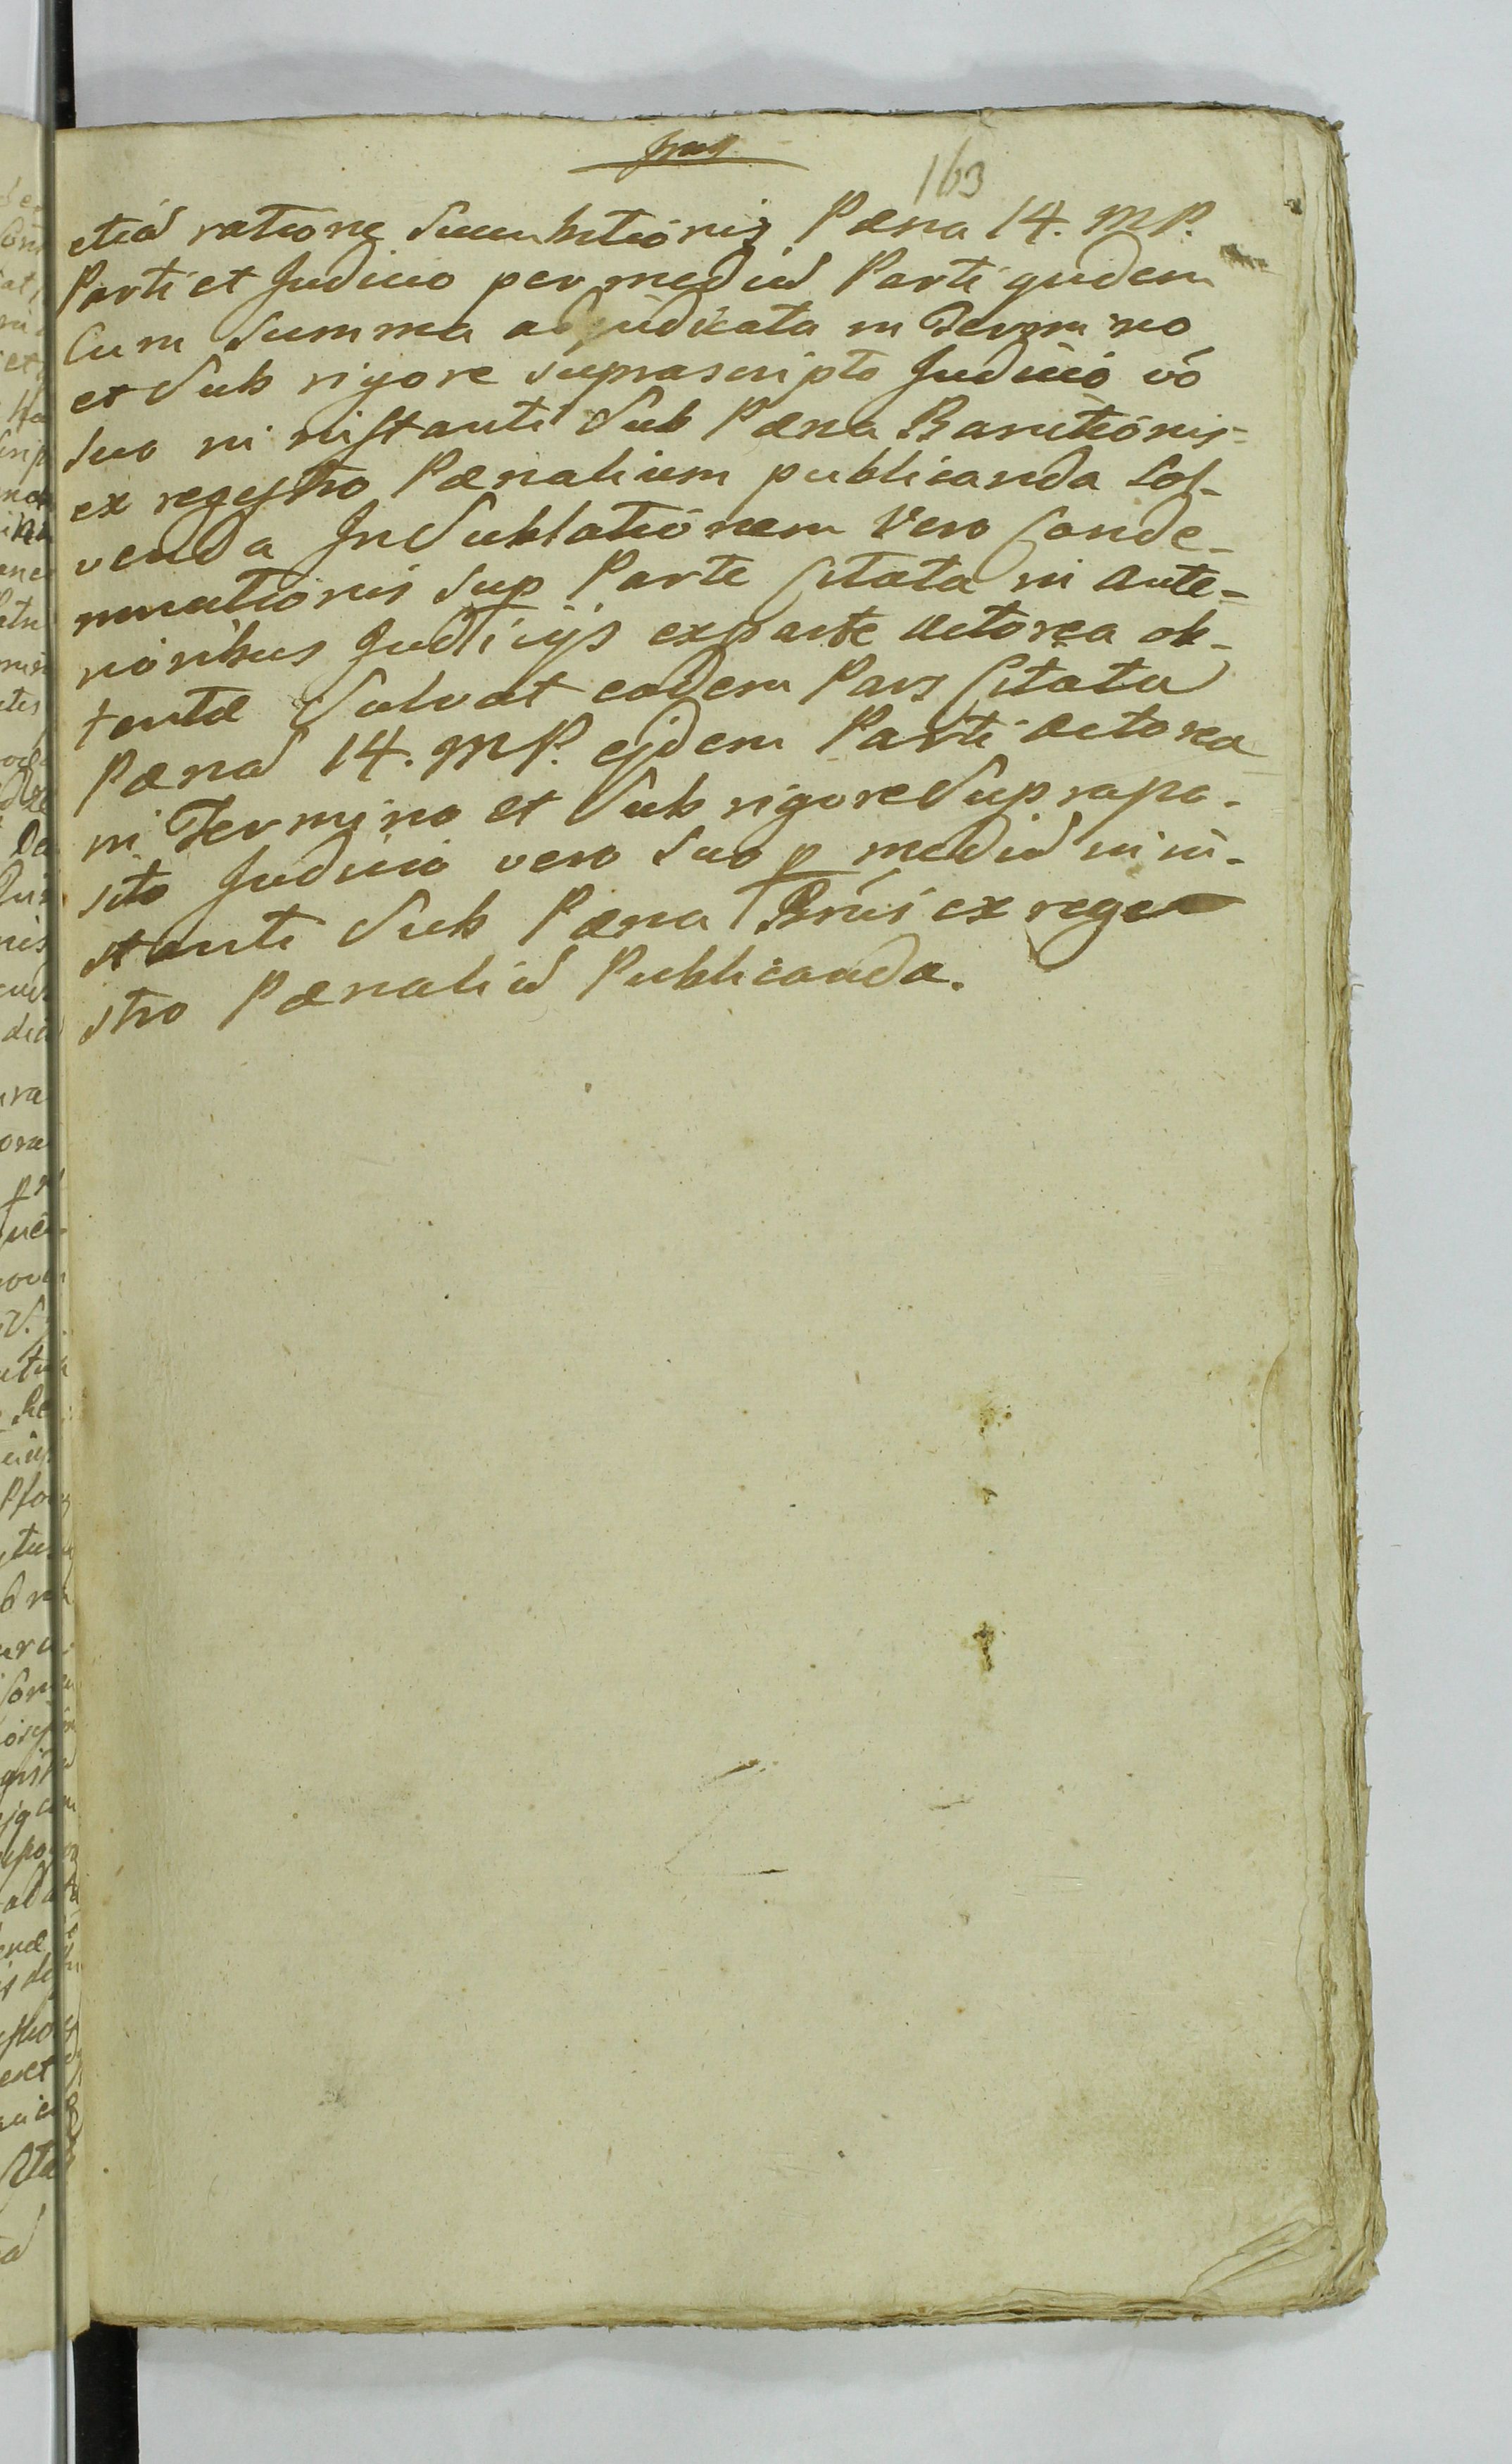 163
etiã ratione Succubitionis Pæna 14. MP.
Parti et Judicio per mediũ Parti quidem
Cum Summa adjudicata in Termino
et Sub rigore suprascripto Judicio vő
suo in instanti Sub Pæna Banitionis
ex regestro Pænalium publicanda sol-
venda In Sublationem Vero Conde-
mnationis Sup Parte Citata in ante-
rioribus Judicijs ex parte actorea ob-
tentæ Solvat eadem Pars Citata
Pænã 14. MP. ejdem Parti actoreæ
in Termino et Sub rigore Suprapo-
sito Judicio vero suo p mediũ in in-
stanti Sub Pæna Bnis ex rege
stro Pænaliũ Publicanda.